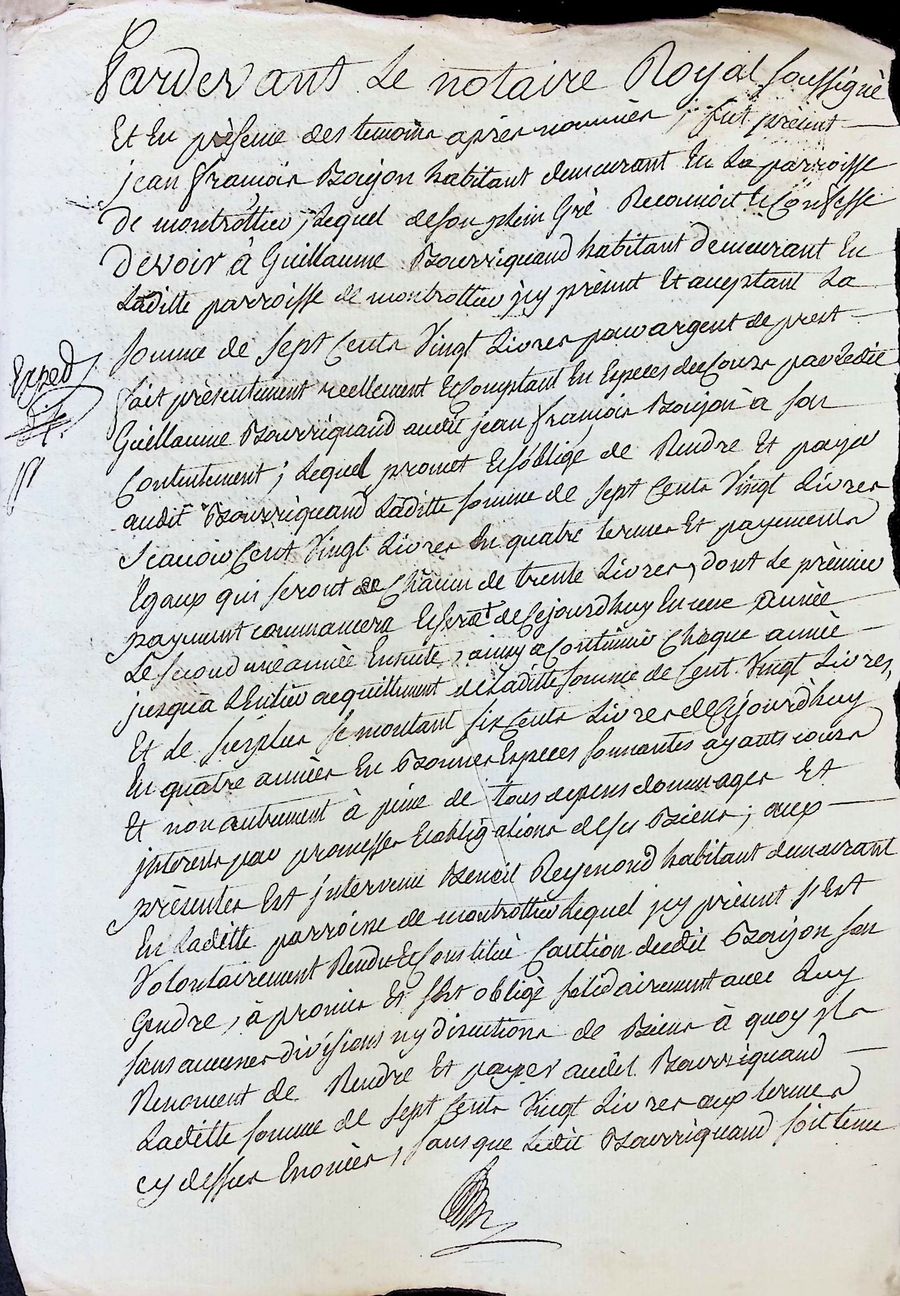 Pardevant Le notaire Royal soussigné
Et En présence des temoins après nommés ; fut présent
jean françois Boujon habitant demeurant En La parroisse
de montrottier, Lequel de son plein Gré Reconnoit et Confesse
Devoir à Guillaume Bourriquand habitant demeurant En
Laditte parroisse de montrottier jcy présent Et aceptant La
somme de sept Cents Vingt Livres pour argent de prest
fait présentement réellement et Comptant En Especes de Cours par Ledit
Guillaume Bourriquand audit jean françois Boujon à son
Contentement ; Lequel promet et s'oblige de Rendre Et payer
audit Bourriquand Laditte somme de sept Cents Vingt Livres
scavoir Cent Vingt Livres En quatre termes Et payements
Egaux qui seront de Chacun de trente Livres, dont Le prémier
payment commancera Et sera de Cejourdhuy En une année
Le second une année Ensuite, ainsy a Continuer Chaque année
jusqu'à L'Entier acquittement de Laditte somme de Cent Vingt Livres,
Et de surplus se montant six Cents Livres de Cejourdhuy
En quatre années En Bonnes Especes sonnantes ayants cours
Et non autrement à peine de tous depens dommages Et
jnterets par promesses Et obligations de ses Biens ; aux
présentes Est jntervenu Benoit Reymond habitant demeurant
En Laditte parroisse de montrottier Lequel jcy présent s'Est
Volontairement Rendu Et Constitué Caution dudit Boujon son
Gendre, à promis Et s'Est obligé solidairement avec Luy
sans aucunes divisions ny directions de Biens à quoy jls
Renoncent de Rendre Et payer audit Bourriquand
Laditte somme de sept Cents Vingt Livres aux termes
cy dessus Enoncés, sans que Ledit Bourriquand soit tenu
Exped